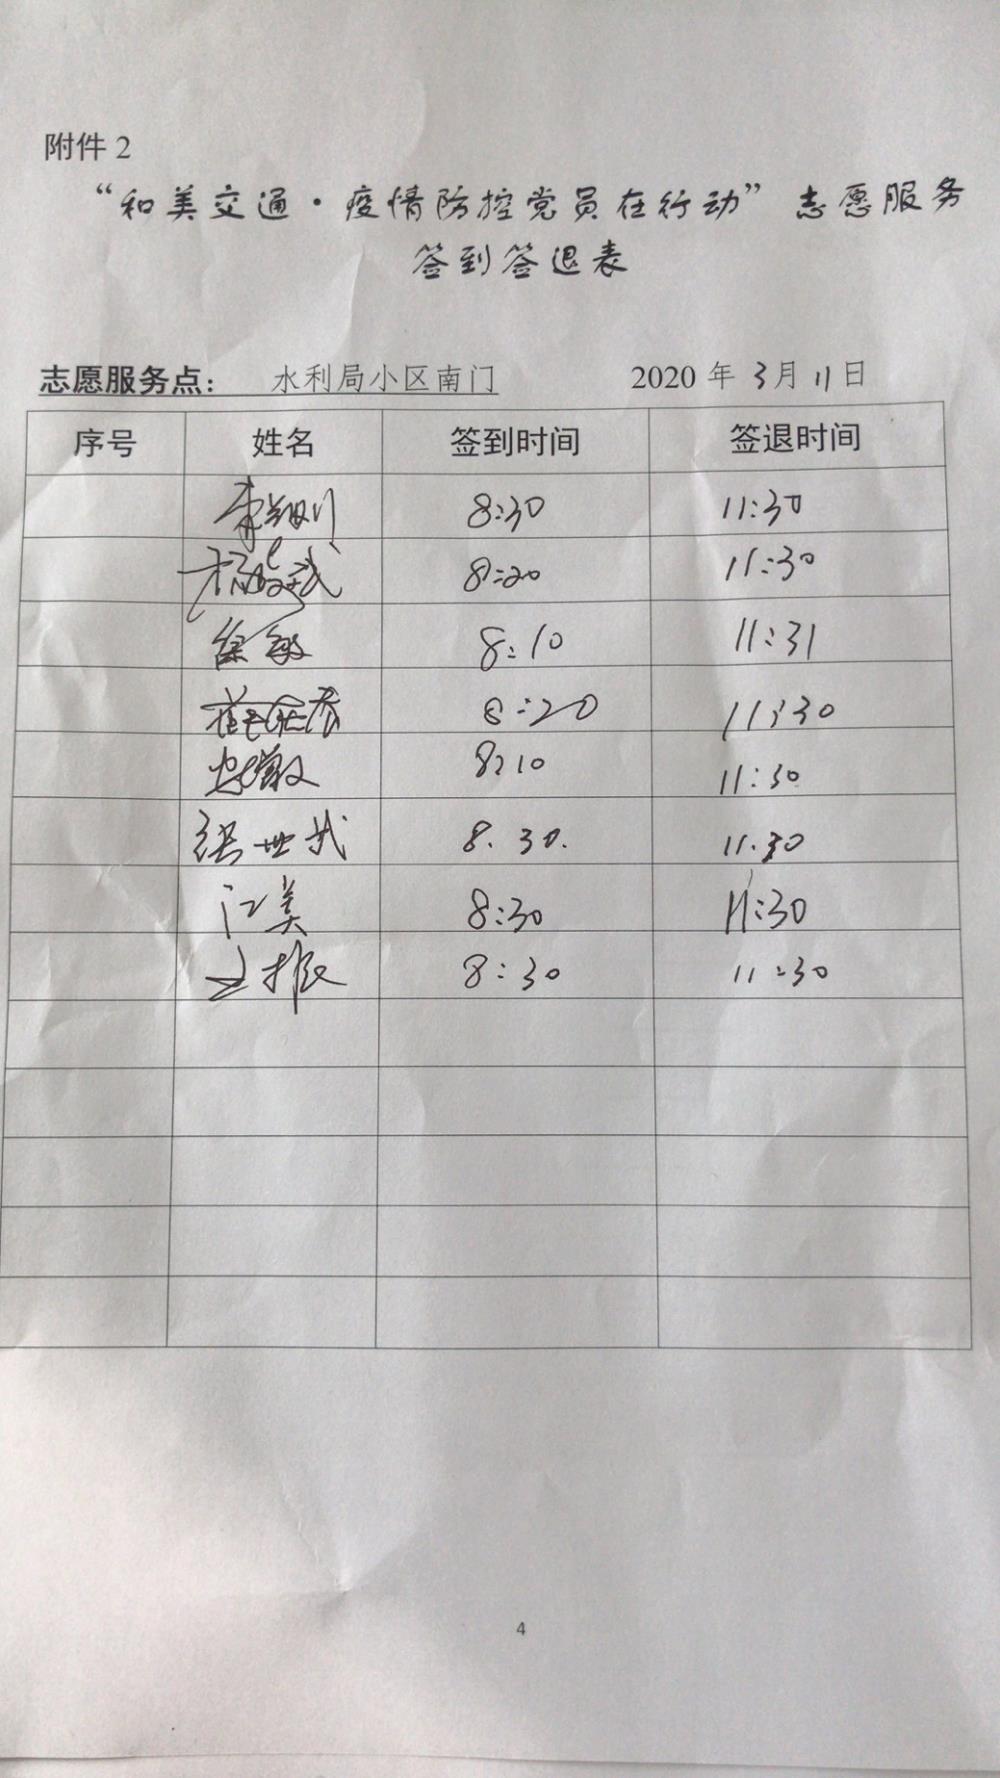 附件2
“和美交通·疫情防控党员在行动”志愿服务
签到签退表
志愿服务点： 水利局小区南门 2020年3月11日
序号 姓名 签到时间 签退时间
8:30 11:30
8:20 11:30
徐敏 8:10 11:31
8:20 11:30
8:10 11:30
张世武 8.30. 11.30
江美 8:30 11:30
8:30 11:30
4